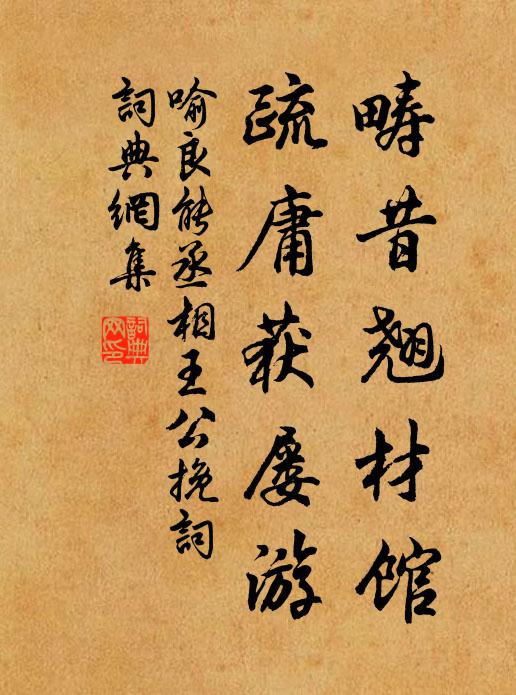 疇昔翹材館
疏庸获屡游
喻良能丞相王公挽詞
詞典網集
詞典網印